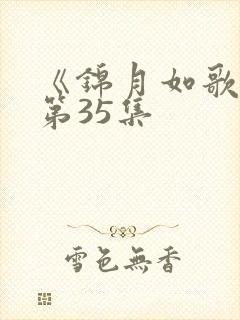 《錦月如歌
第35集
雪色無香